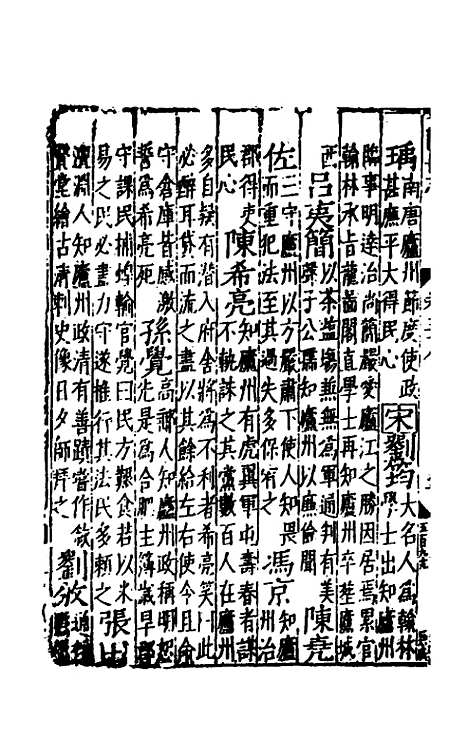 瑀南唐廬州節度使政甚廉平大得民心宋劉筠大名人自翰林學士出知廬州
臨事明達治尚簡嚴愛廬江之勝因居焉累官翰林承旨龍圖閣直學士再知廬州卒塟廬城
西呂夷簡以茶鹽場無為軍通判有美以廉儉聞陳堯
佐三守廬州以方嚴肅下使人知畏而重犯法至其過失多保宥之馮京知廬州治
郡得吏民心陳希亮知廬州有虎翼軍屯壽春者謀不軌誅之其黨數百人在廬州
多自疑有潛入府舍將為不利者希亮笑曰此必醉耳貸而流之盡以其餘給左右使令且命
守倉庫皆感激誓為希亮死孫覺高郵人知廬州政稱明恕先是為合肥主簿歲旱
守課民捕蝗輸官覺曰民方艱食若以米易之民必盡力守遂推行其法民多賴之張
濆淵人知廬州政清有善蹟嘗作堂繪古廬刺史像日夕師拜之劉攽